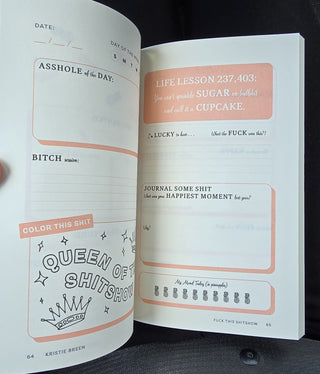 DATE:
DAY OF THE
S M T
ASSHOLE of the DAY:
BITCH session:
COLOR THIS SHIT
QUEEN OF THE
SHITSHOW
64 KRISTIE BREEN
LIFE LESSON 237,403:
You can't sprinkle SUGAR on bullshit
and call it a CUPCAKE.
I'm LUCKY to have . . .
What the FUCK was this?!
JOURNAL SOME SHIT
What are your HAPPIEST MOMENT
Why?
My Mood Today (in pineapples)
FUCK THIS SHITSHOW 65